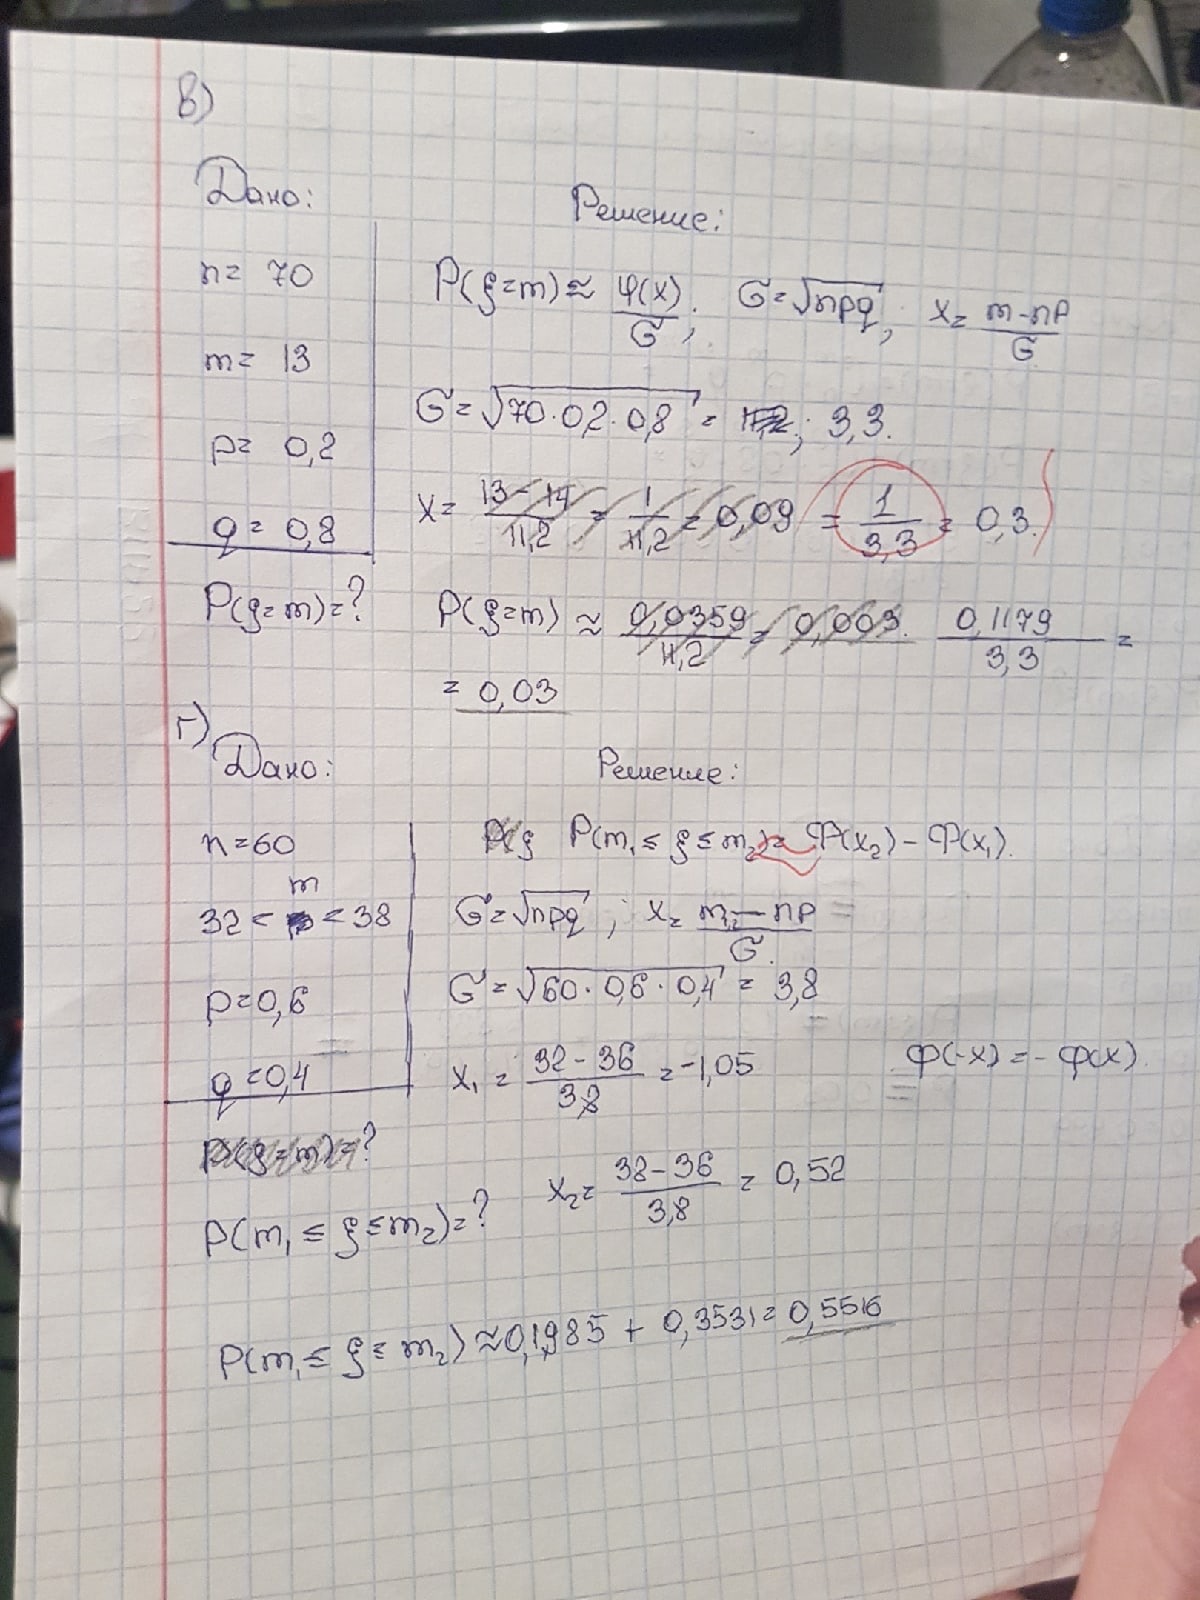 в)
Дано:
Решение:
n = 70
m = 13
p = 0,2
q = 0,8
P(ξ=m)=?
P(ξ=m) ≈ φ(x)/σ; σ = √npq; x = m-np/σ
σ = √70·0,2·0,8 = ; 3,3.
x = 13-14/11,2 = 1/11,2 = 0,09 = 1/3,3 = 0,3.
P(ξ=m) ≈ 0,0359/11,2 = 0,003. 0,1179/3,3 =
= 0,03
г)
Дано:
Решение:
n=60
32 < m < 38
p=0,6
q=0,4
P(ξ=m)=?
P(m₁ ≤ ξ ≤ m₂)=?
P(m₁ ≤ ξ ≤ m₂) = Φ(x₂) - Φ(x₁).
σ = √npq; x = m - np/σ.
σ = √60·0,6·0,4 = 3,8
x₁ = 32-36/3,8 = -1,05
Φ(-x) = -Φ(x).
x₂ = 38-36/3,8 = 0,52
P(m₁ ≤ ξ ≤ m₂) ≈ 0,1985 + 0,3531 = 0,5516